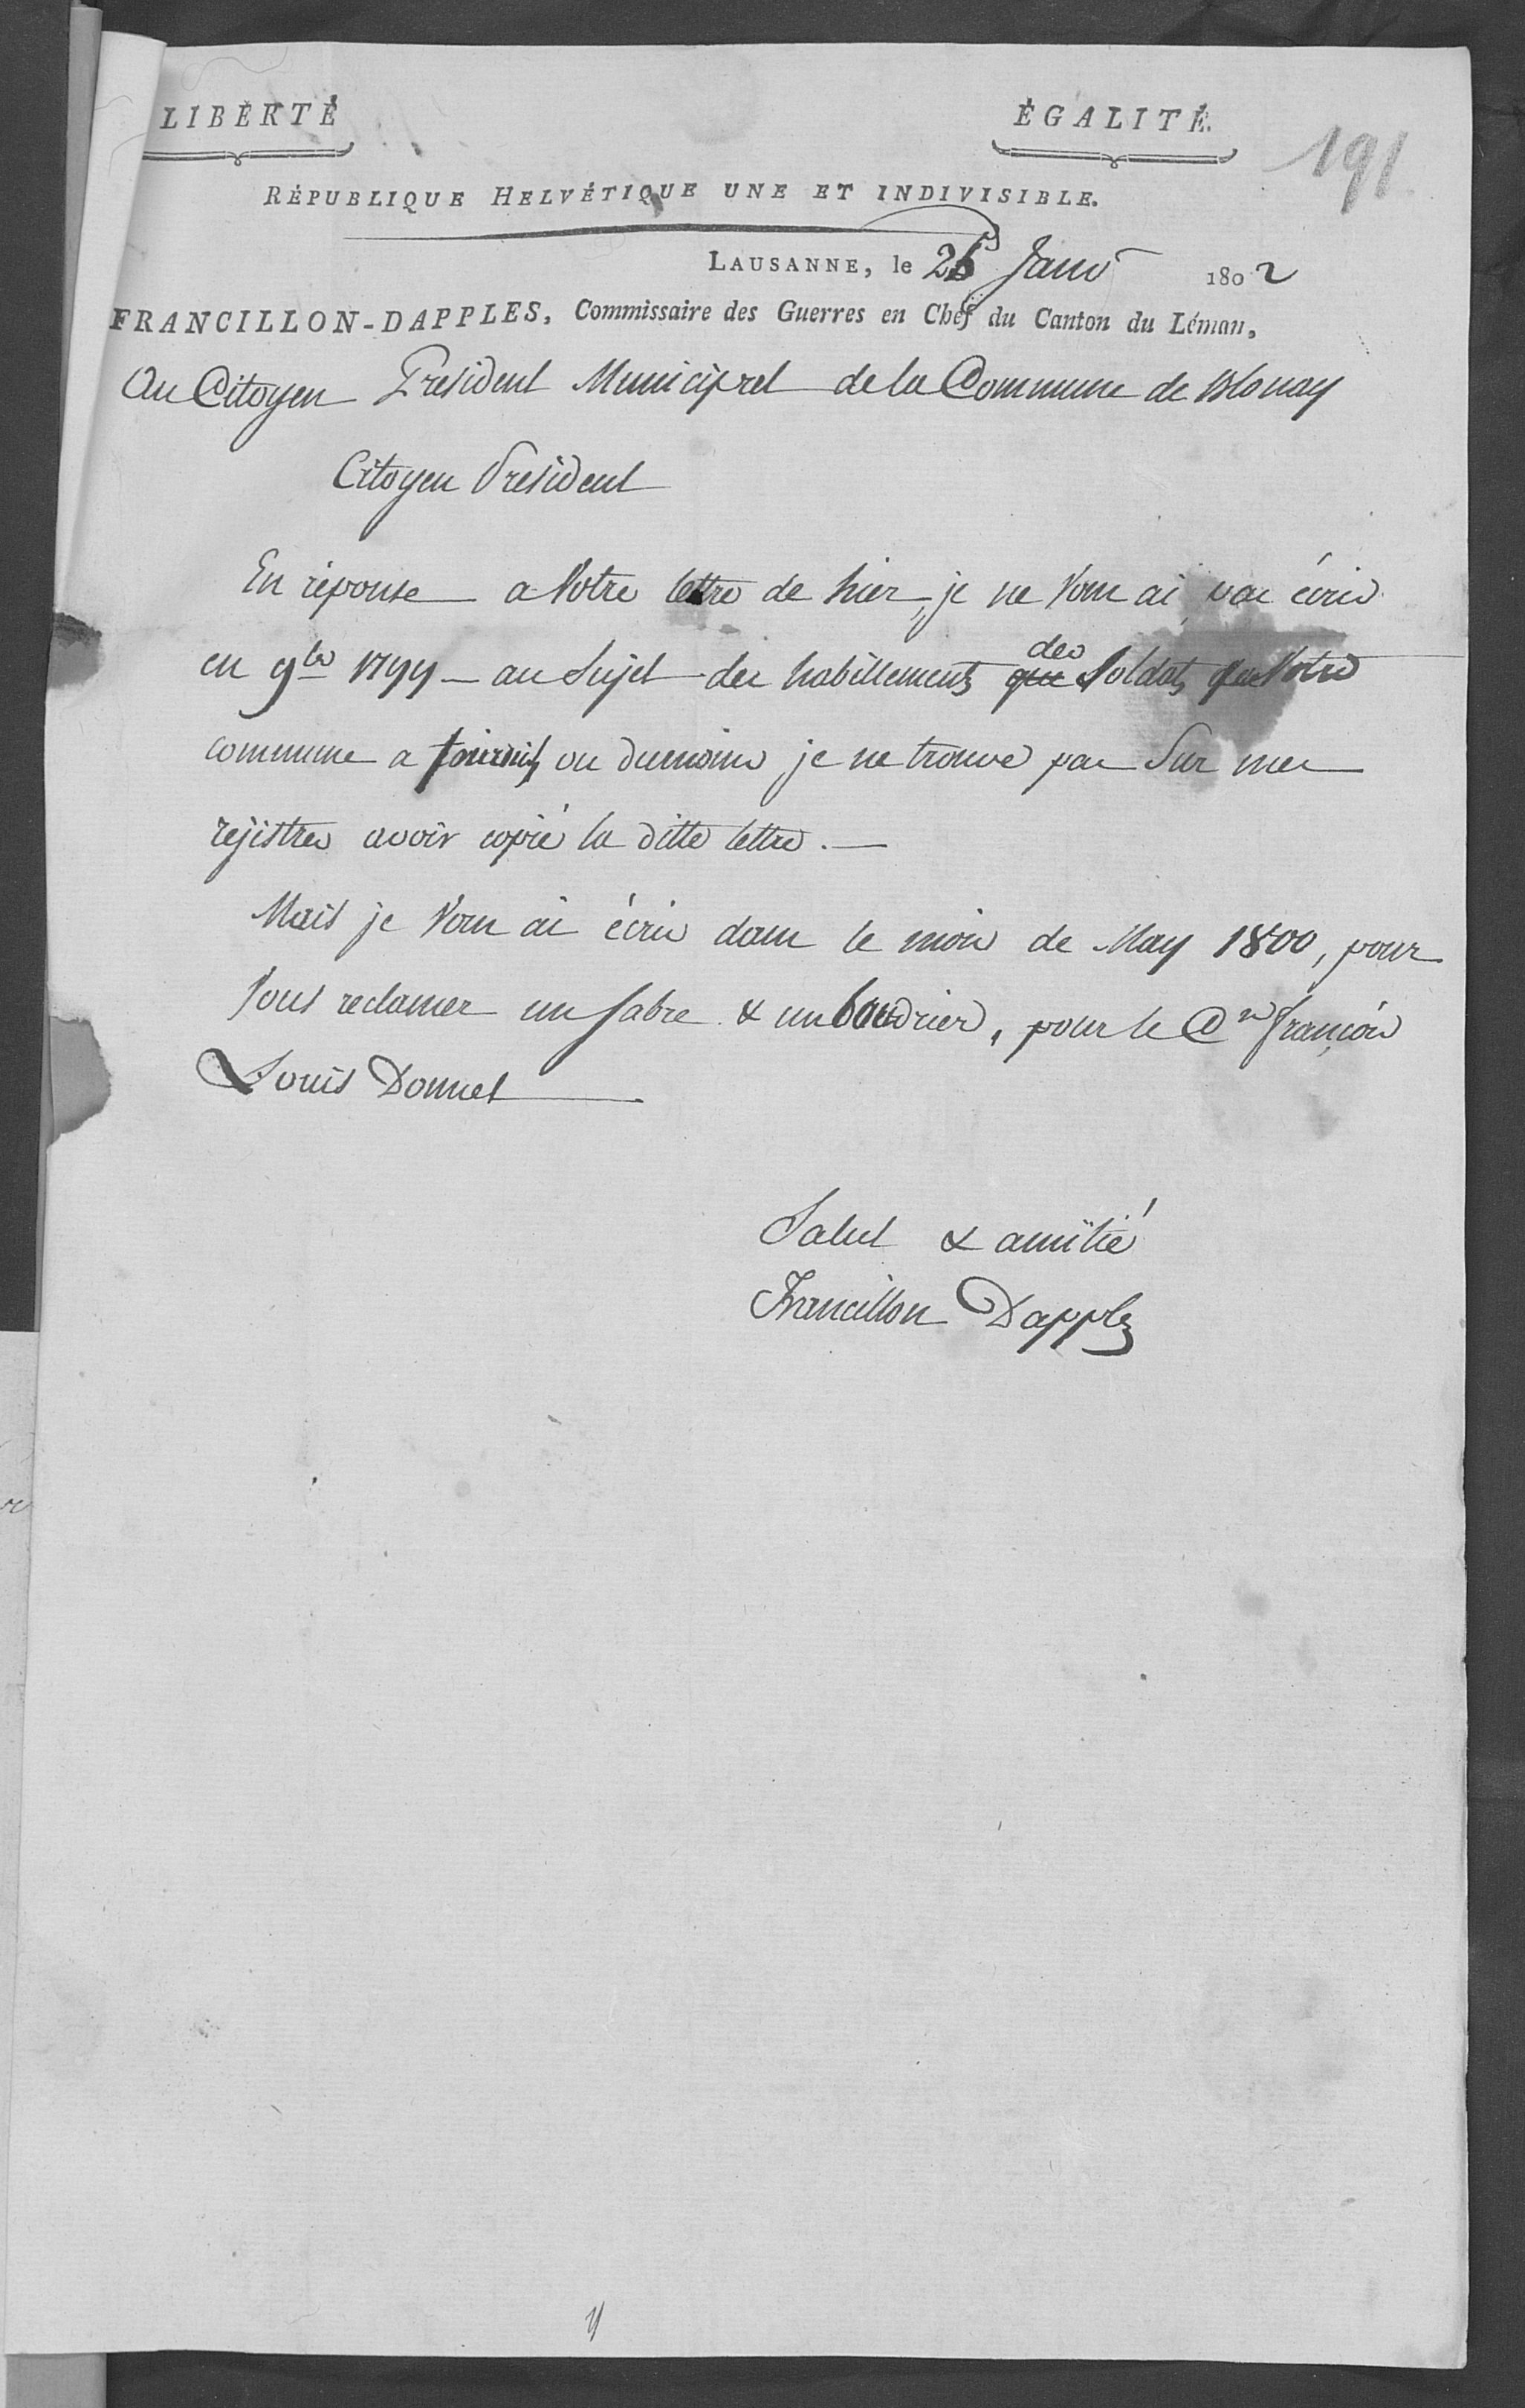 LIBERTÉ
ÉGALITÉ.
191
RÉPUBLIQUE HELVÉTIQUE UNE ET INDIVISIBLE.
LAUSANNE, le 26 Janv 1802
FRANCILLON-DAPPLES, Commissaire des Guerres en Chef du Canton du Léman,
Au Citoyen President Municipal de la Commune de Blonay
Citoyen President
En réponse a Votre lettre de hier, je ne Vous ai pas écris
en 9bre 1799 – au Sujet des habillements que des Soldats que Votre
commune a fournis, ou dumoins je ne trouve pas Sur mes
rejistres avoir copié la ditte lettre. —
Mais je Vous ai écris dans le mois de May 1800, pour
Vous reclamer un Sabre & un baudrier, pour le Cn françois
Louis Donnet
Salut & amitié
Francillon Dapples